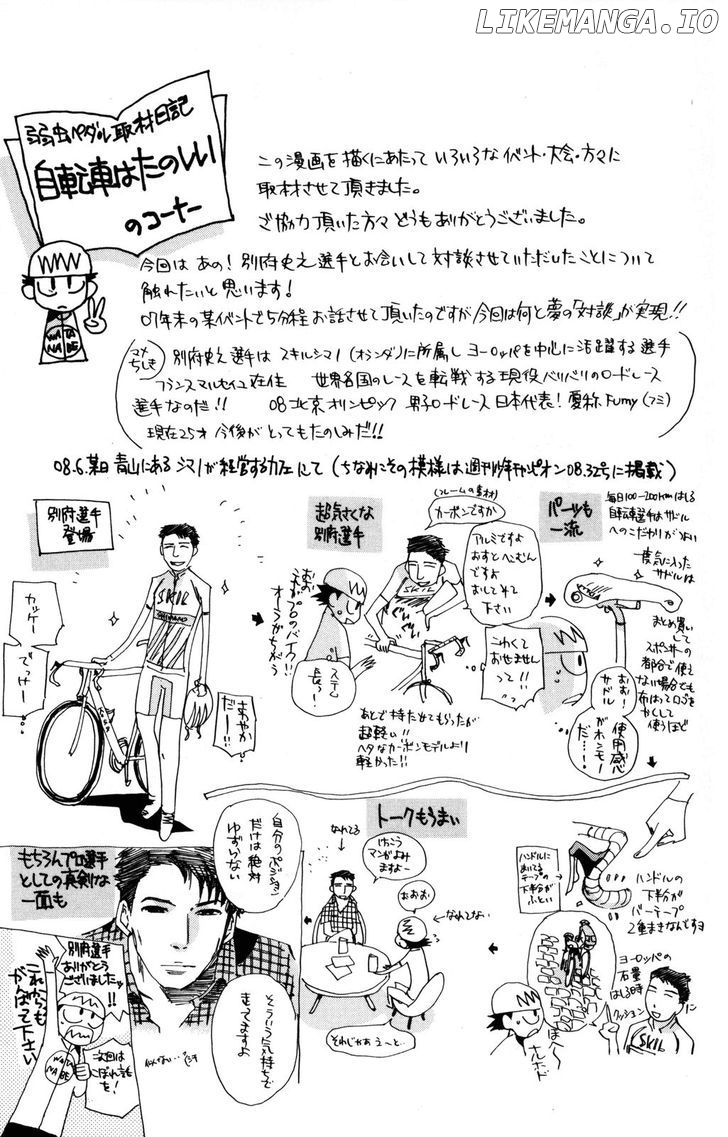 LIKEMANGA.IO
弱虫ペダル取材日記
自転車はたのしい
のコーナー
この漫画を描くにあたって いろいろなイベント・大会・方々に
取材させて頂きました。
ご協力頂いた方々 どうもありがとうございました。
今回は あの！別府史之選手とお会いして対談させていただいたことについて
触れたいと思います！
07年末の某イベントで5分程お話させて頂いたのですが今回は何と夢の「対談」が実現!!
マメちしき
別府史之選手は スキルシマノ(オランダ)に所属し ヨーロッパを中心に活躍する選手
フランスマルセイユ在住 世界各国のレースを転戦する現役バリバリのロードレース
選手なのだ!! 08北京オリンピック 男子ロードレース日本代表！愛称 Fumy (フミ)
現在25才 今後がとってもたのしみだ!!
08.6.某日 青山にある シマノが経営するカフェにて (ちなみにその模様は週刊少年チャンピオン08.32号に掲載)
別府選手
登場
カッケー
でっけー
SKIL
SHIMANO
さわやか
だー!!
超気さくな
別府選手
(フレームの素材)
カーボンですか
アルミですよ
おすとへこむん
ですよ
おしてみて
下さい
SKIL
こわくて
おせません
って!!
おお
これがプロのバイク!!
オーラがちがう
ステム
長っ！
あとで持たせてもらったが
超軽い!!
ヘタなカーボンモデルより
軽かった!!
パーツも
一流
毎日100〜200kmはしる
自転車選手はサドル
へのこだわりがつよい
一度気に入った
サドルは
まとめ買い
して
スポンサーの
都合で使え
ない場合でも
布はってロゴを
かくして
使うほど
おお！
サドル
使用感
がホンモノ
だ…！
ハンドルに
まいてる
テープの
下半分が
ぶっとい
ハンドルの
下半分が
バーテープ
2重まきなんですヨ
ヨーロッパの
石畳
はしる時
クッション
に
SKIL
は〜
ナルホド
トークもうまい
なれてる
けっこう
マンガよみ
ますよー
おおお
なれてない
それじゃあ え〜と…
もちろんプロ選手
としての真剣な
一面も
自分のポジション
だけは絶対
ゆずらない
そういう気持ちで
走ってますよ
別府選手
ありがとう
ございましたッ
!!
これからも
がんばって下さい
次回は
こぼれ話
を！
WATA
NABE